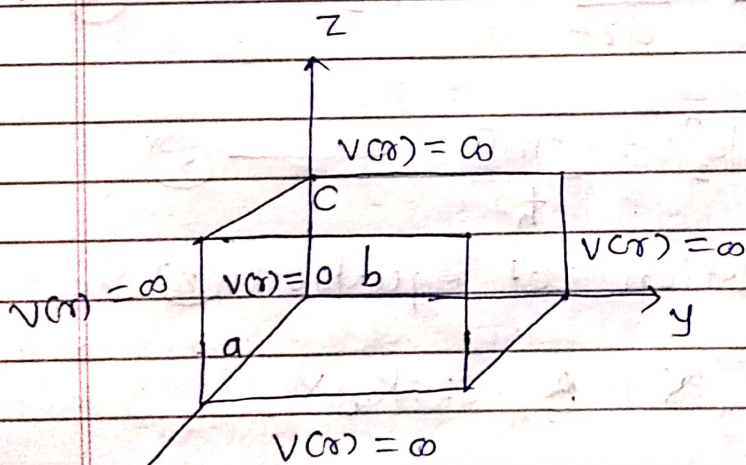 Z
V(r) = ∞
C
V(r) = ∞
V(r) = ∞
V(r) = 0
b
y
a
V(r) = ∞